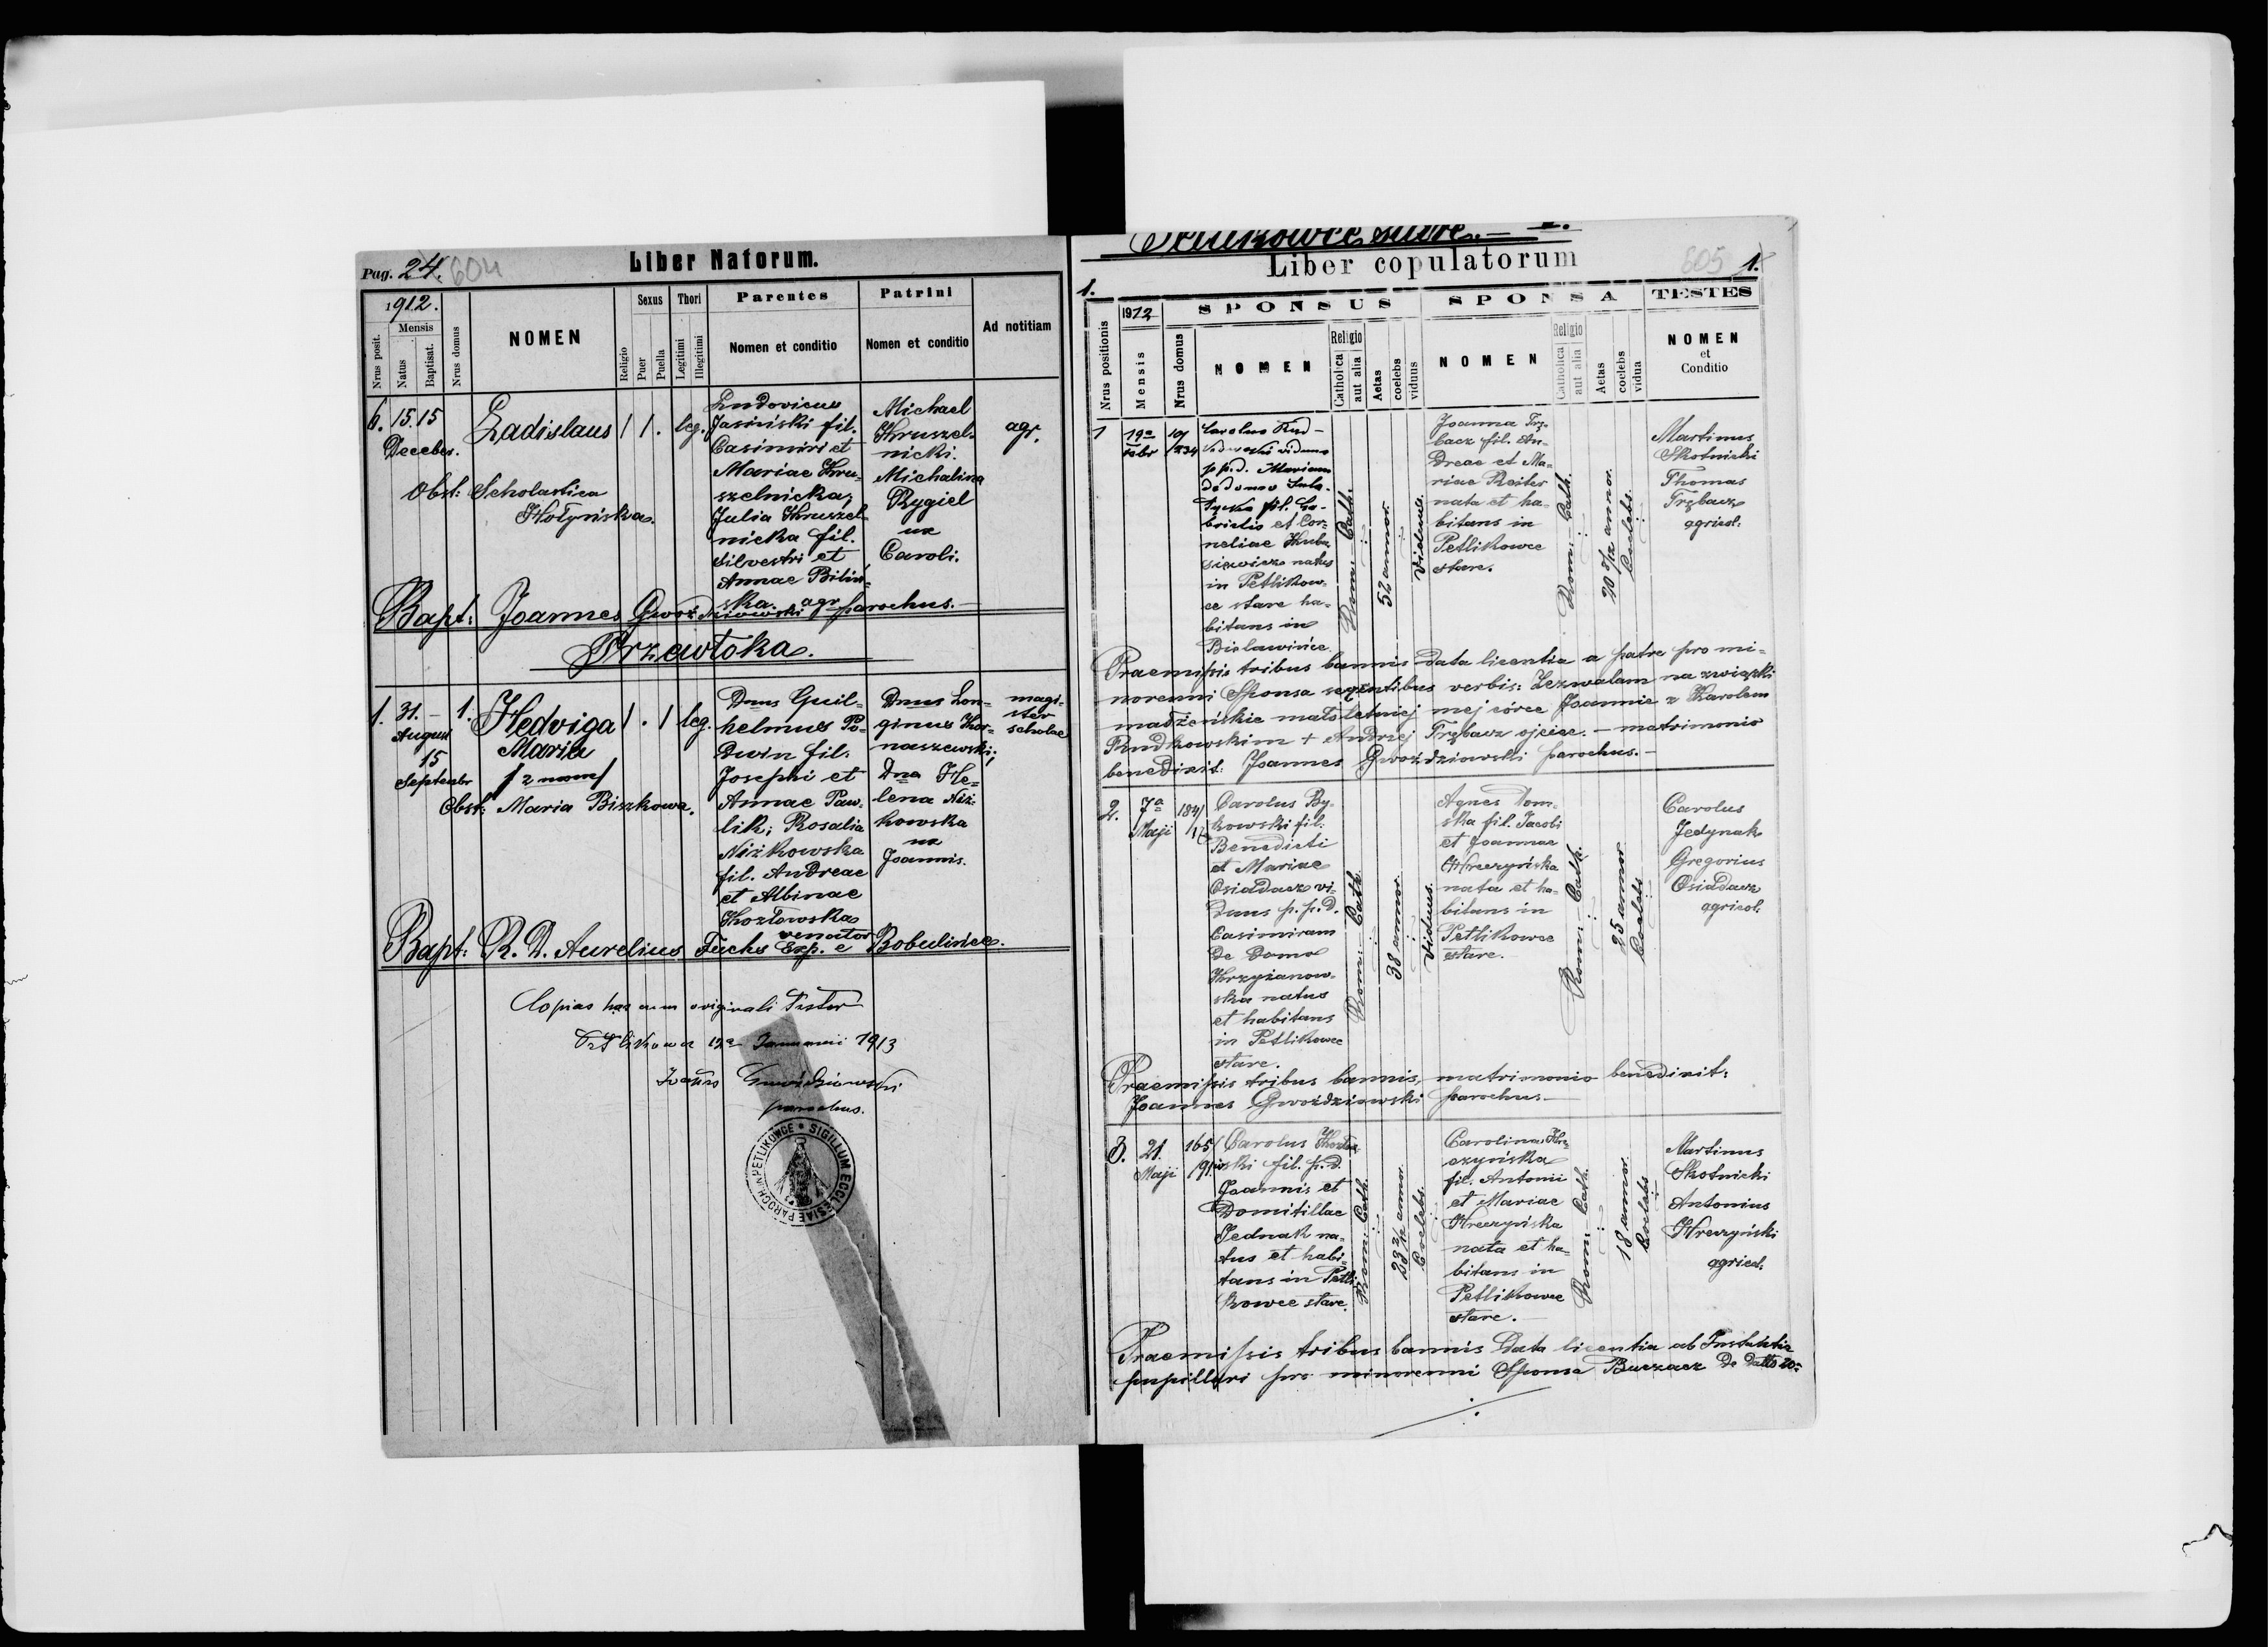 Pag. 24. 604
Liber Natorum.
1912.
Mensis
Nrus posit.
Natus
Baptisat.
Nrus domus
NOMEN
Religio
Sexus
Puer
Puella
Thori
Legitimi
Illegitimi
Parentes
Nomen et conditio
Patrini
Nomen et conditio
Ad notitiam
6. 15. 15
Decebr.
Ladislaus
1 1. leg.
Ludovicus
Jasiński fil.
Casimiri et
Mariae Kru-
szelnicka;
Julia Kruszel-
nicka fil.
Silvestri et
Annae Biliń-
ska. agr.
Michael
Kruszel-
nicki.
Michalina
Rygiel
ux
Caroli.
agr.
Obst: Scholastica
Hołyńska.
Bapt: Joannes Gwoździowski parochus.
Przewłoka.
1. 31.
August
15
Septembr
1.
Hedviga
Maria
/2 nom/
1 . 1 leg.
Dnus Guil-
helmus Po-
Dwin fil.
Josephi et
Annae Paw-
lik; Rosalia
Niżkowska
fil. Andreae
et Albinae
Kozłowska
venator
Dnus Lon-
ginus Kor-
naszewski;
Dna He-
lena Niż-
kowska
ux
Joannis.
magi-
ster
scholae
Obst: Maria Biszkowa.
Bapt: R. D. Aurelius Fuchs Exp. e Bobulińce.
Copias has cum originali testor
Januarii 1913
Gwoździowski
parochus.
SIGILLUM ECCLESIAE PAROCH. IN PETLIKOWCE
Petlikowce stare. — 1.
Liber copulatorum
605 1.
1.
1912
Nrus positionis
Mensis
Nrus domus
SPONSUS
NOMEN
Religio
Catholica
aut alia
Aetas
coelebs
viduus
SPONSA
NOMEN
Religio
Catholica
aut alia
Aetas
coelebs
vidua
TESTES
NOMEN
et
Conditio
1
19a
Carolus Rud-
viduus
p.p.d. Mariam
de domo
fil. Ga-
brielis et Cor-
neliae
natus
in Petlikow-
ce stare ha-
bitans in
Bielawińce
Rom: Cath.
52 annor.
Viduus.
Joanna Trę-
bacz fil. An-
dreae et Ma-
riae Reiter
nata et ha-
bitans in
Petlikowce
stare.
Rom: Cath.
annor.
Coelebs.
Martinus
Skotnicki
Thomas
Trębacz
agricol.
Praemissis tribus bannis data licentia a patre pro mi-
norenni Sponsa seqentibus verbis: Zezwalam na związki
madżeńskie małoletniej mej córce Joannie z Karolem
Rudkowskim + Andrzej Trębacz ojciec. — matrimonio
benedixit: Joannes Gwoździowski parochus. —
2.
7a
Maji
184/
Carolus By-
kowski fil.
Benedicti
et Mariae
Osiadacz vi-
duus p.p.d.
Casimiram
De Domo
Krzyżanow-
ska natus
et habitans
in Petlikowce
stare.
Rom: Cath.
38 annor.
Viduus.
Agnes Dom-
ska fil. Jacobi
et Joannae
Hreczyńska
nata et ha-
bitans in
Petlikowce
stare.
Rom: Cath.
25 annor
Coelebs
Carolus
Jedynak
Gregorius
Osiadacz
agricol:
Praemissis tribus bannis, matrimonio benedixit:
Joannes Gwoździowski parochus. —
3.
21.
Maji
165/
Carolus
fil. p.d.
Joannis et
Domitillae
Jednak na-
tus et habi-
tans in Petli-
kowce stare.
Rom: Cath.
annor.
Coelebs.
Carolina Hre-
czyńska
fil. Antonii
et Mariae
Hreczyńska
nata et ha-
bitans in
Petlikowce
stare.
Rom: Cath.
18 annor.
Coelebs
Martinus
Skotnicki
Antonius
Hreczyński
agricol.
Praemissis tribus bannis Data licentia ab Instantia
pupillari pro minorenni Sponsa Buczacz De Datto 20-